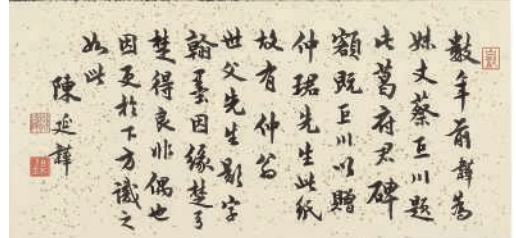 數年前韡為
妹丈蔡巨川題
此葛府君碑
額既巨川以贈
仲珺先生此紙
故有仲翁
世父先生影字
翰墨因緣楚弓
楚得良非偶也
因更於下方識之
如此
陳延韡